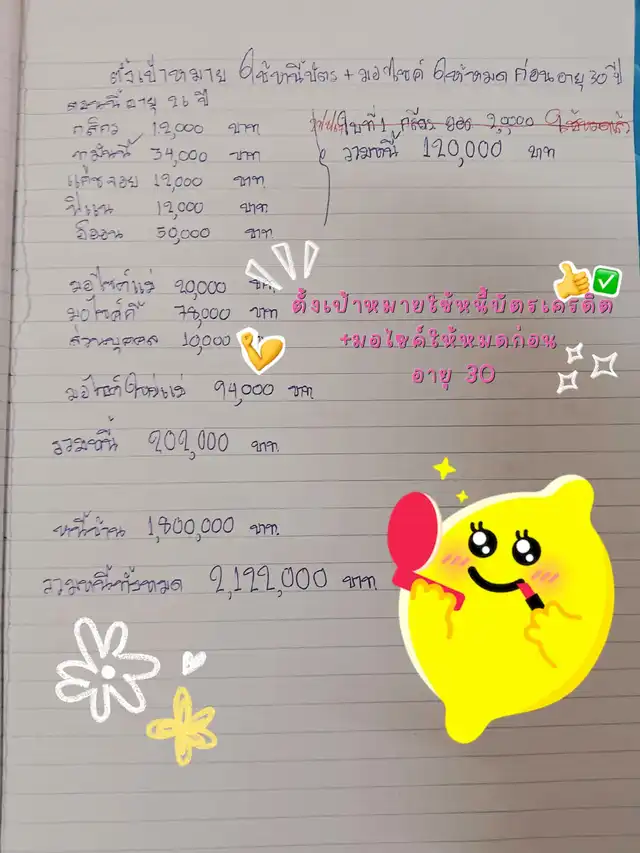 ตั้งเป้าหมาย ใช้หนี้บัตร + มอไซค์ ให้หมด ก่อนอายุ 30 ปี
ตอนนี้อายุ 26 ปี
กสิกร 12,000 บาท
ใบที่ 1 กสิกร ยอด 20,000 ใช้หมดแล้ว
34,000 บาท
รวมหนี้ 120,000 บาท
12,000 บาท
12,000 บาท
อิออน 50,000 บาท
มอไซค์แม่ 20,000
มอไซค์พี่ 78,000 บาท
ส่วนบุคคล 10,000
ตั้งเป้าหมายใช้หนี้บัตรเครดิต
+มอไซค์ให้หมดก่อน
อายุ 30
มอไซค์ใหม่แม่ 94,000 บาท
รวมหนี้ 202,000 บาท
หนี้บ้าน 1,800,000 บาท
รวมหนี้ทั้งหมด 2,122,000 บาท